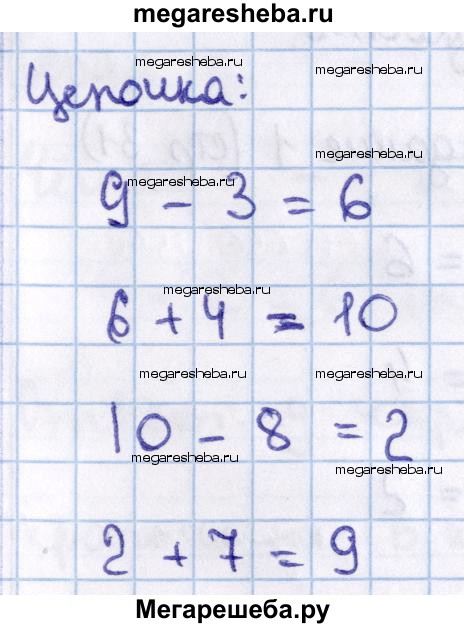 megaresheba.ru
megaresheba.ru megaresheba.ru
Цепочка:
megaresheba.ru
megaresheba.ru
9 - 3 = 6
megaresheba.ru
6 + 4 = 10
megaresheba.ru megaresheba.ru
10 - 8 = 2
megaresheba.ru megaresheba.ru
2 + 7 = 9
Мегарешеба.ру